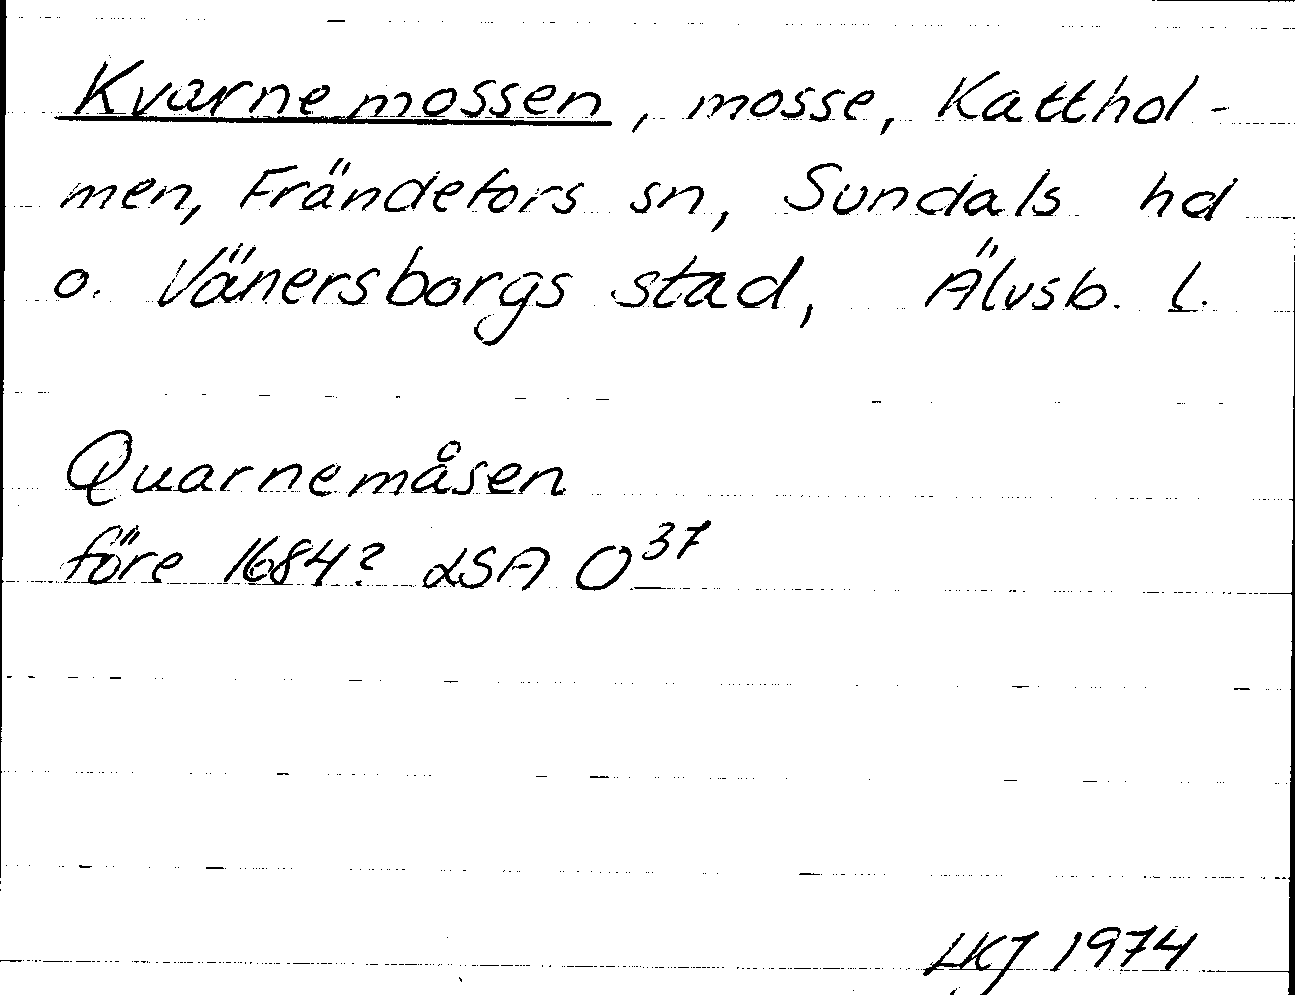 Kvarnemossen, mosse, Katthol-
men, Frändefors sn, Sundals hd
o. Vänersborgs stad, Älvsb. l.
Quarnemåsen
före 1684? LSA O³⁷
LKJ 1974